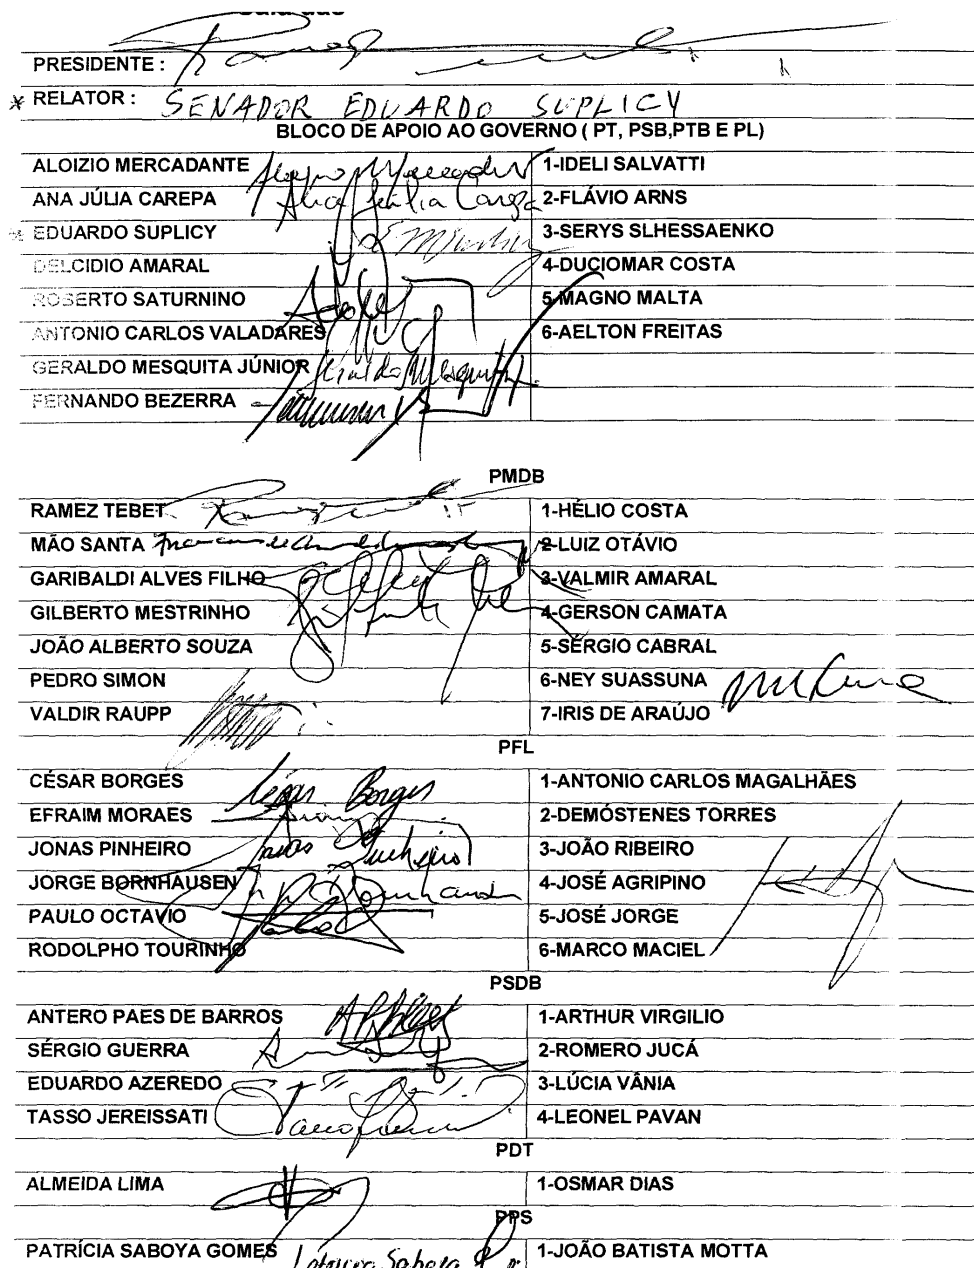 PRESIDENTE :
* RELATOR : SENADOR EDUARDO SUPLICY
BLOCO DE APOIO AO GOVERNO ( PT, PSB,PTB E PL)
ALOIZIO MERCADANTE 1-IDELI SALVATTI
ANA JÚLIA CAREPA Ana Júlia Carepa 2-FLÁVIO ARNS
* EDUARDO SUPLICY 3-SERYS SLHESSAENKO
DELCIDIO AMARAL 4-DUCIOMAR COSTA
ROBERTO SATURNINO 5-MAGNO MALTA
ANTONIO CARLOS VALADARES 6-AELTON FREITAS
GERALDO MESQUITA JÚNIOR Geraldo Mesquita
FERNANDO BEZERRA
PMDB
RAMEZ TEBET 1-HÉLIO COSTA
MÃO SANTA 2-LUIZ OTÁVIO
GARIBALDI ALVES FILHO 3-VALMIR AMARAL
GILBERTO MESTRINHO 4-GERSON CAMATA
JOÃO ALBERTO SOUZA 5-SÉRGIO CABRAL
PEDRO SIMON 6-NEY SUASSUNA
VALDIR RAUPP 7-IRIS DE ARAÚJO
PFL
CÉSAR BORGES César Borges 1-ANTONIO CARLOS MAGALHÃES
EFRAIM MORAES 2-DEMÓSTENES TORRES
JONAS PINHEIRO Jonas Pinheiro 3-JOÃO RIBEIRO
JORGE BORNHAUSEN 4-JOSÉ AGRIPINO
PAULO OCTAVIO 5-JOSÉ JORGE
RODOLPHO TOURINHO 6-MARCO MACIEL
PSDB
ANTERO PAES DE BARROS 1-ARTHUR VIRGILIO
SÉRGIO GUERRA 2-ROMERO JUCÁ
EDUARDO AZEREDO 3-LÚCIA VÂNIA
TASSO JEREISSATI 4-LEONEL PAVAN
PDT
ALMEIDA LIMA 1-OSMAR DIAS
PPS
PATRÍCIA SABOYA GOMES Patrícia Saboya 1-JOÃO BATISTA MOTTA